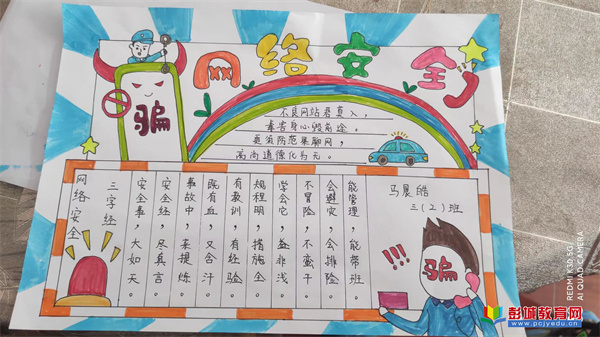 网络安全
骗
不良网站君莫入，
毒害身心毁前途。
防范集聊网，
高尚道德化为无。
网络安全
三字经
安全事，大如天。
安全经，尽其言。
事故中，来提炼。
既有血，又含汗。
有教训，有经验。
规程明，措施全。
学会它，益非浅。
不冒险，不蛮干。
会避灾，会排险。
能管理，能带班。
马晨皓
三(2)班
!!!
骗
REDMI K30 5G
AI QUAD CAMERA
彭城教育网
www.pcjyedu.cn